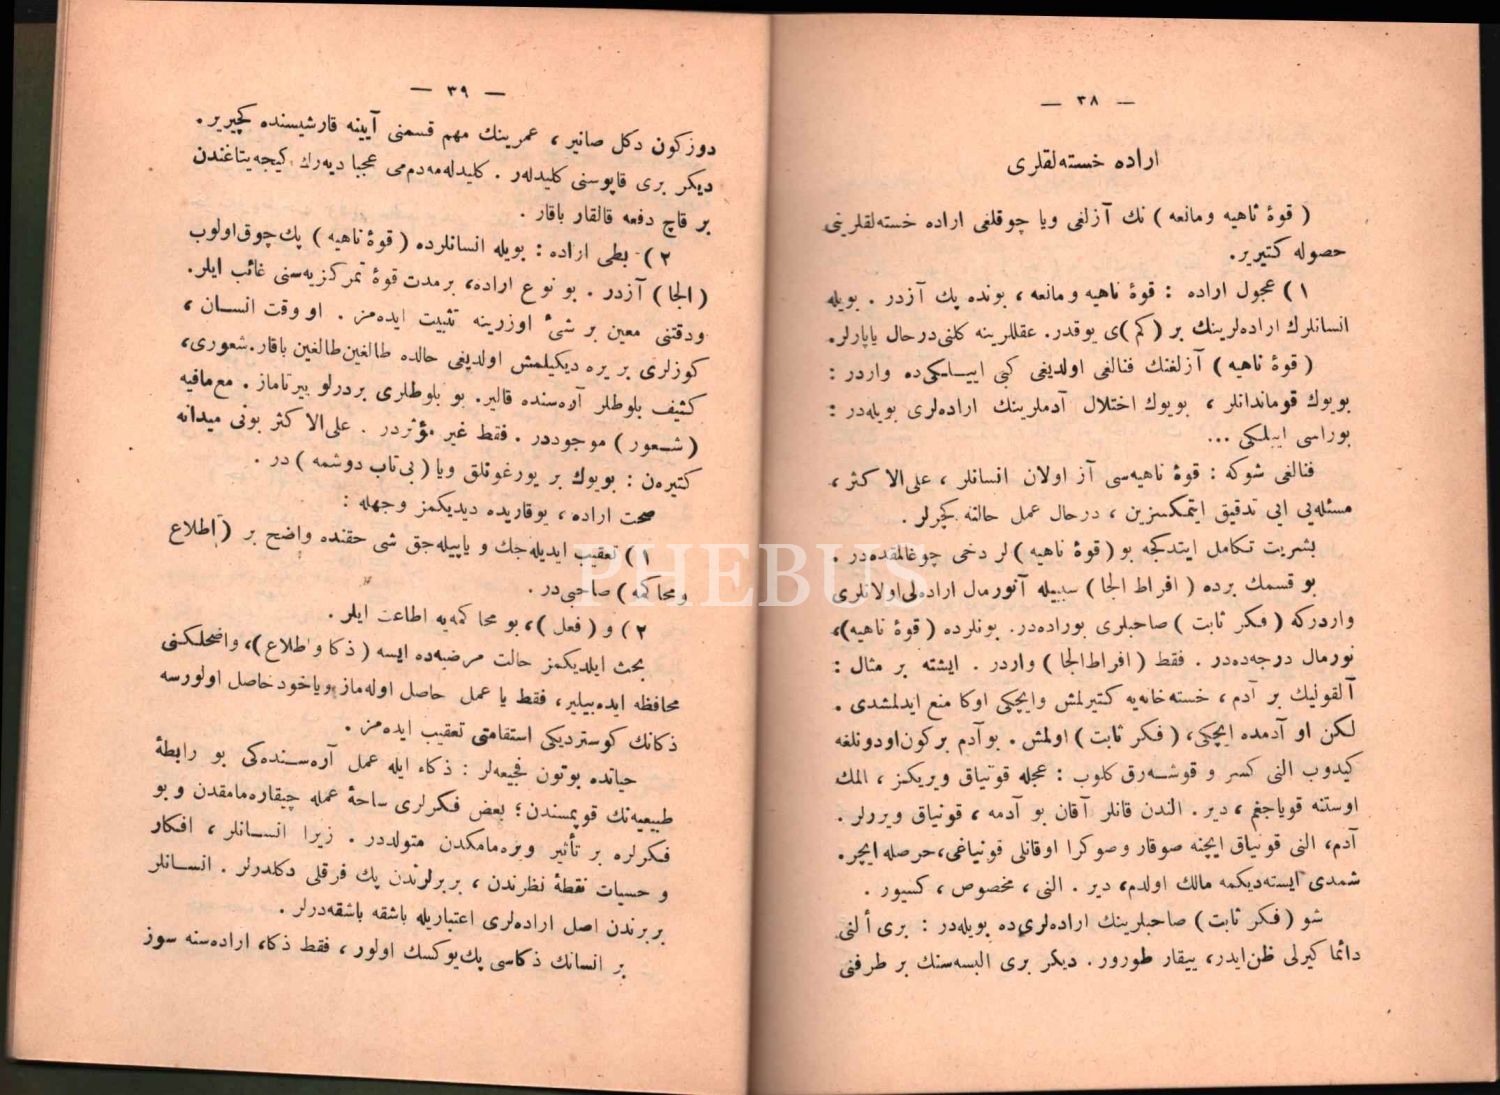 — ٣٨ —
اراده خسته‌لقلری
( قوهٔ ناهیه و مانعه ) نك آزلغی ویا چوقلغی اراده خسته‌لقلرینی
حصوله كتیریر.
١ ) عجول اراده : قوهٔ ناهیه و مانعه ، بونده پك آزدر . بویله
انسانلرك اراده‌لرینك بر (كم)ی یوقدر. عقللرینه كلنی درحال یاپارلر.
( قوهٔ ناهیه ) آزلغنك فنالغی اولدیغی كبی اییلكی‌ده واردر :
بویوك قوماندانلر ، بویوك اختلال آدملرینك اراده‌لری بویله‌در :
بوراسی اییلكی ...
فنالغی شوكه : قوهٔ ناهیه‌سی آز اولان انسانلر ، علی‌الاكثر ،
مسئله‌یی ایی تدقیق ایتمكسزین ، درحال عمل حالته كچرلر .
بشریت تكامل ایتدكجه بو ( قوهٔ ناهیه ) لر دخی چوغالمقده‌در .
بو قسمك برده ( افراط الجا ) سببیله آنورمال اراده‌لی‌اولانلری
واردركه ( فكر ثابت ) صاحبلری بوراده‌در. بونلرده ( قوهٔ ناهیه )،
نورمال درجه‌ده‌در . فقط ( افراط الجا ) واردر . ایشته بر مثال :
آلقولیك بر آدم ، خسته‌خانه‌یه كتیرلمش وایچكی اوكا منع ایدلمشدی .
لكن او آدمده ایچكی، ( فكر ثابت ) اولمش . بو آدم بركون‌اودونلغه
كیدوب النی كسر و قوشه‌رق كلوب : عجله قونیاق ویریكز ، المك
اوستنه قویاجغم ، دیر . الندن قانلر آقان بو آدمه ، قونیاق ویررلر .
آدم، النی قونیاق ایچنه صوقار وصوكرا اوقانلی قونیاغی،حرصله ایچر.
شمدی ایسته‌دیكمه مالك اولدم، دیر . النی ، مخصوص ، كسیور .
شو ( فكر ثابت ) صاحبلرینك اراده‌لری‌ده بویله‌در : بری ألنی
دائما كیرلی ظن‌ایدر، ییقار طورور . دیكر بری البسه‌سنك بر طرفنی
— ٣٩ —
دوزكون دكل صانیر ، عمرینك مهم قسمنی آیینه قارشیسنده كچیریر.
دیكر بری قاپوسنی كلیدله‌ر . كلیدله‌مه‌دم‌می عجبا دیه‌رك كیجه‌یتاغندن
بر قاچ دفعه قالقار باقار .
٢ ) بطی اراده : بویله انسانلرده ( قوهٔ ناهیه ) پك‌چوق‌اولوب
( الجا ) آزدر . بو نوع اراده، برمدت قوهٔ تمركزیه‌سنی غائب ایلر.
ودقتنی معین بر شیء اوزرینه تثبیت ایده‌مز . او وقت انسان ،
كوزلری بر یره دیكیلمش اولدیغی حالده طالغین‌طالغین باقار.شعوری،
كثیف بلوطلر آره‌سنده قالیر. بو بلوطلری بردرلو ییرتاماز . مع‌مافیه
( شعور ) موجوددر . فقط غیر مؤثردر . علی‌الاكثر بونی میدانه
كتیره‌ن : بویوك بر یورغونلق ویا ( بی‌تاب دوشمه ) در .
صحت اراده ، یوقاریده دیدیكمز وجهله :
١ ) تعقیب ایدیله‌جك و یاپیله‌جق شی حقنده واضح بر ( اطلاع
ومحاكمه ) صاحبی‌در .
٢ ) و ( فعل )، بو محاكمه‌یه اطاعت ایلر.
بحث ایلدیكمز حالت مرضیه‌ده ایسه ( ذكا واطلاع )، واضحلكنی
محافظه ایده‌بیلیر، فقط یا عمل حاصل اوله‌ماز ویاخود حاصل اولورسه
ذكانك كوستردیكی استقامتی تعقیب ایده‌مز .
حیاتده بوتون فجیعه‌لر : ذكاء ایله عمل آره‌سنده‌كی بو رابطهٔ
طبیعیه‌نك قوپمسندن؛ بعض فكرلری ساحهٔ عمله چیقاره‌مامقدن و بو
فكرلره بر تأثیر ویره‌مامكدن متولددر . زیرا انسانلر ، افكار
و حسیات نقطهٔ نظرندن ، بربرلرندن پك فرقلی دكلدرلر . انسانلر
بربرندن اصل اراده‌لری اعتباریله باشقه باشقه‌درلر .
بر انسانك ذكاسی پك‌یوكسك اولور ، فقط ذكا، اراده‌سنه سوز
PHEBUS